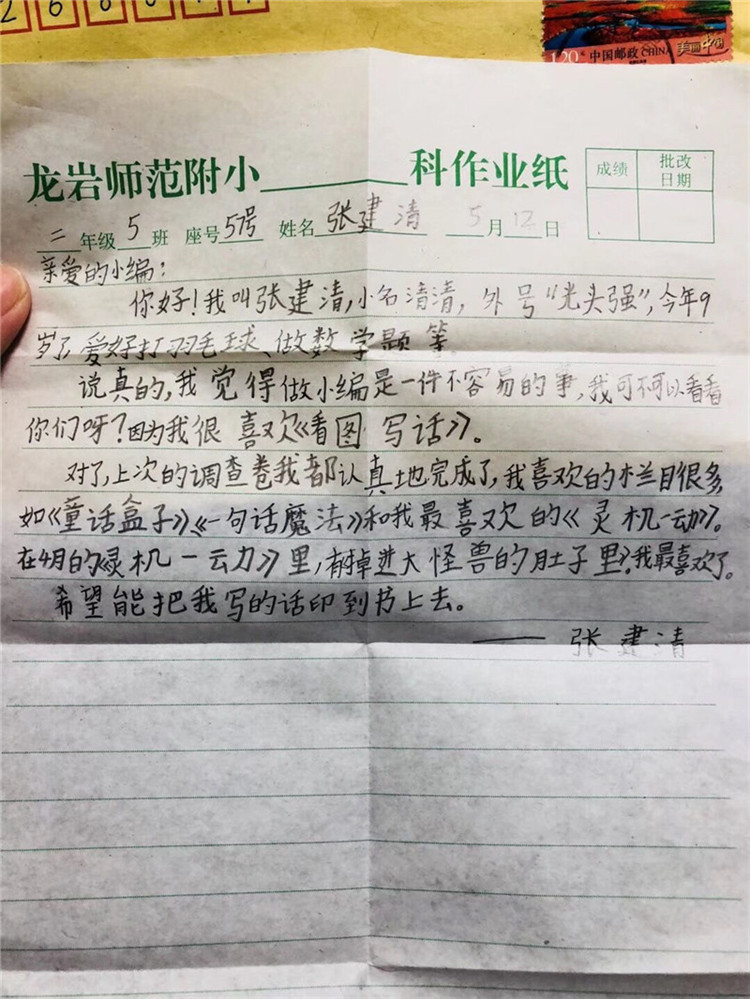 中国邮政 CHINA 美丽中国
龙岩师范附小 科作业纸 成绩 批改日期
二年级 5 班 座号 57号 姓名 张建清 5月12日
亲爱的小编：
你好！我叫张建清，小名清清，外号“光头强”，今年9
岁了，爱好打羽毛球、做数学题等
说真的，我觉得做小编是一件不容易的事，我可不可以看看
你们呀？因为我很喜欢《看图写话》。
对了，上次的调查卷我都认真地完成了，我喜欢的栏目很多，
如《童话盒子》《一句话魔法》和我最喜欢的《灵机一动》。
在4月的《灵机一动》里，有掉进大怪兽的肚子里，我最喜欢了。
希望能把我写的话印到书上去。
——张建清